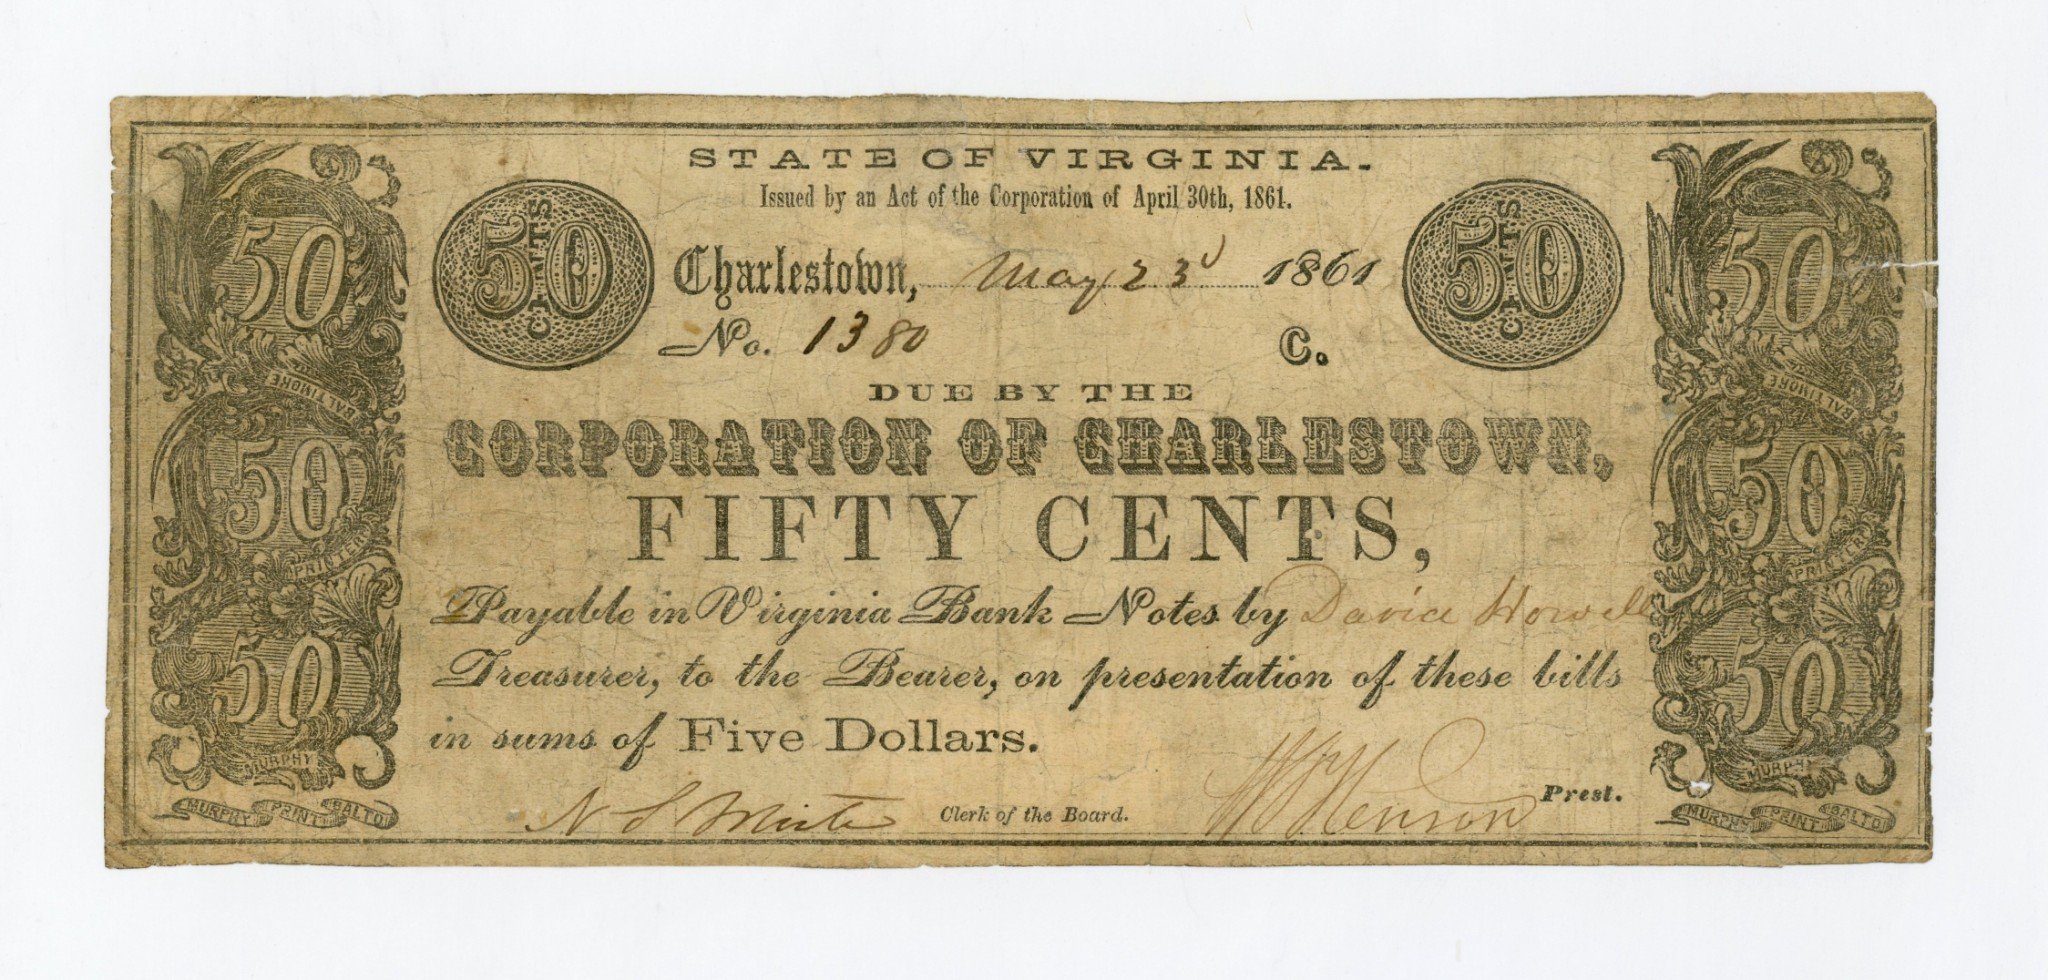 STATE OF VIRGINIA.
Issued by an Act of the Corporation of April 30th, 1861.
50 CENTS
50 CENTS
Charlestown, May 23d 1861
No. 1380 C.
DUE BY THE
CORPORATION OF CHARLESTOWN,
FIFTY CENTS,
Payable in Virginia Bank Notes by David Howell
Treasurer, to the Bearer, on presentation of these bills
in sums of Five Dollars.
N S White Clerk of the Board. Prest.
50
BALTIMORE
50
PRINTERS
50
MURPHY
MURPHY PRINT BALTO
50
BALTIMORE
50
PRINTERS
50
MURPHY
MURPHY PRINT BALTO